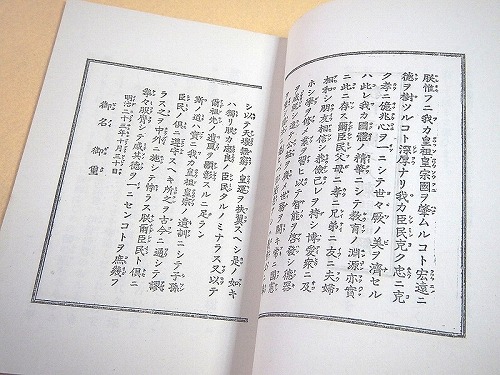 朕惟フニ我カ皇祖皇宗國ヲ肇ムルコト宏遠ニ
德ヲ樹ツルコト深厚ナリ我カ臣民克ク忠ニ克
ク孝ニ億兆心ヲ一ニシテ世々厥ノ美ヲ濟セル
ハ此レ我カ國體ノ精華ニシテ教育ノ淵源亦實
ニ此ニ存ス爾臣民父母ニ孝ニ兄弟ニ友ニ夫婦
相和シ朋友相信シ恭儉己レヲ持シ博愛衆ニ及
ホシ學ヲ修メ業ヲ習ヒ以テ智能ヲ啓發シ德器
ヲ成就シ進テ公益ヲ廣メ世務ヲ開キ常ニ國憲
シ以テ天壤無窮ノ皇運ヲ扶翼スヘシ是ノ如キ
ハ獨リ朕カ忠良ノ臣民タルノミナラス又以テ
爾祖先ノ遺風ヲ顯彰スルニ足ラン
斯ノ道ハ實ニ我カ皇祖皇宗ノ遺訓ニシテ子孫
臣民ノ俱ニ遵守スヘキ所之ヲ古今ニ通シテ謬
ラス之ヲ中外ニ施シテ悖ラス朕爾臣民ト俱ニ
拳々服膺シテ咸其德ヲ一ニセンコトヲ庶幾フ
明治二十三年十月三十日
御名 御璽